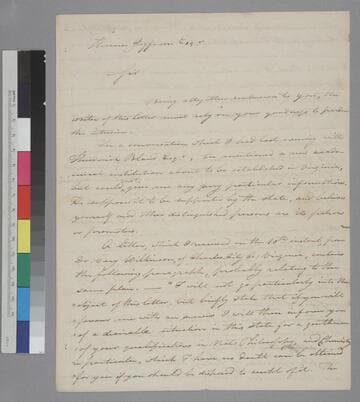 Thomas Jefferson Esqr.
Sir
Being altogether unknown to you, the
writer of this letter must rely on your goodness to pardon
the intrusion.
In a conversation which I had last evening with
Esqr., he mentioned a new academical
institution about to be established in Virginia,
but could give me any very particular information.
He supposed it to be supported by the state, and
yourself and other distinguished persons are its patrons
or promoters.
A letter, which I received on the 10th instant from
Dr. Cary Wilkinson, of Charles City Co. Virginia, contains
the following paragraph, probably relating to the
same place. — "I will not go particularly into the
object of this letter, but briefly state that if you will
favour me with an answer I will then inform you
of a desirable situation in this state for a gentleman
of your qualifications in Nat. Philosophy, and Chemistry
in particular, which I have no doubt can be obtained
for you if you should be disposed to accept of it. The